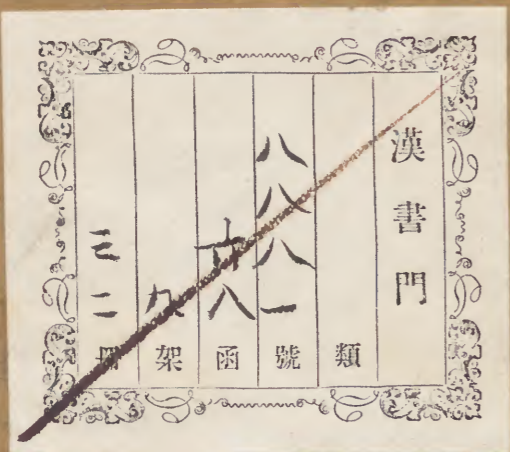 漢書門
類
八八八一號
六八函
九架
三二冊